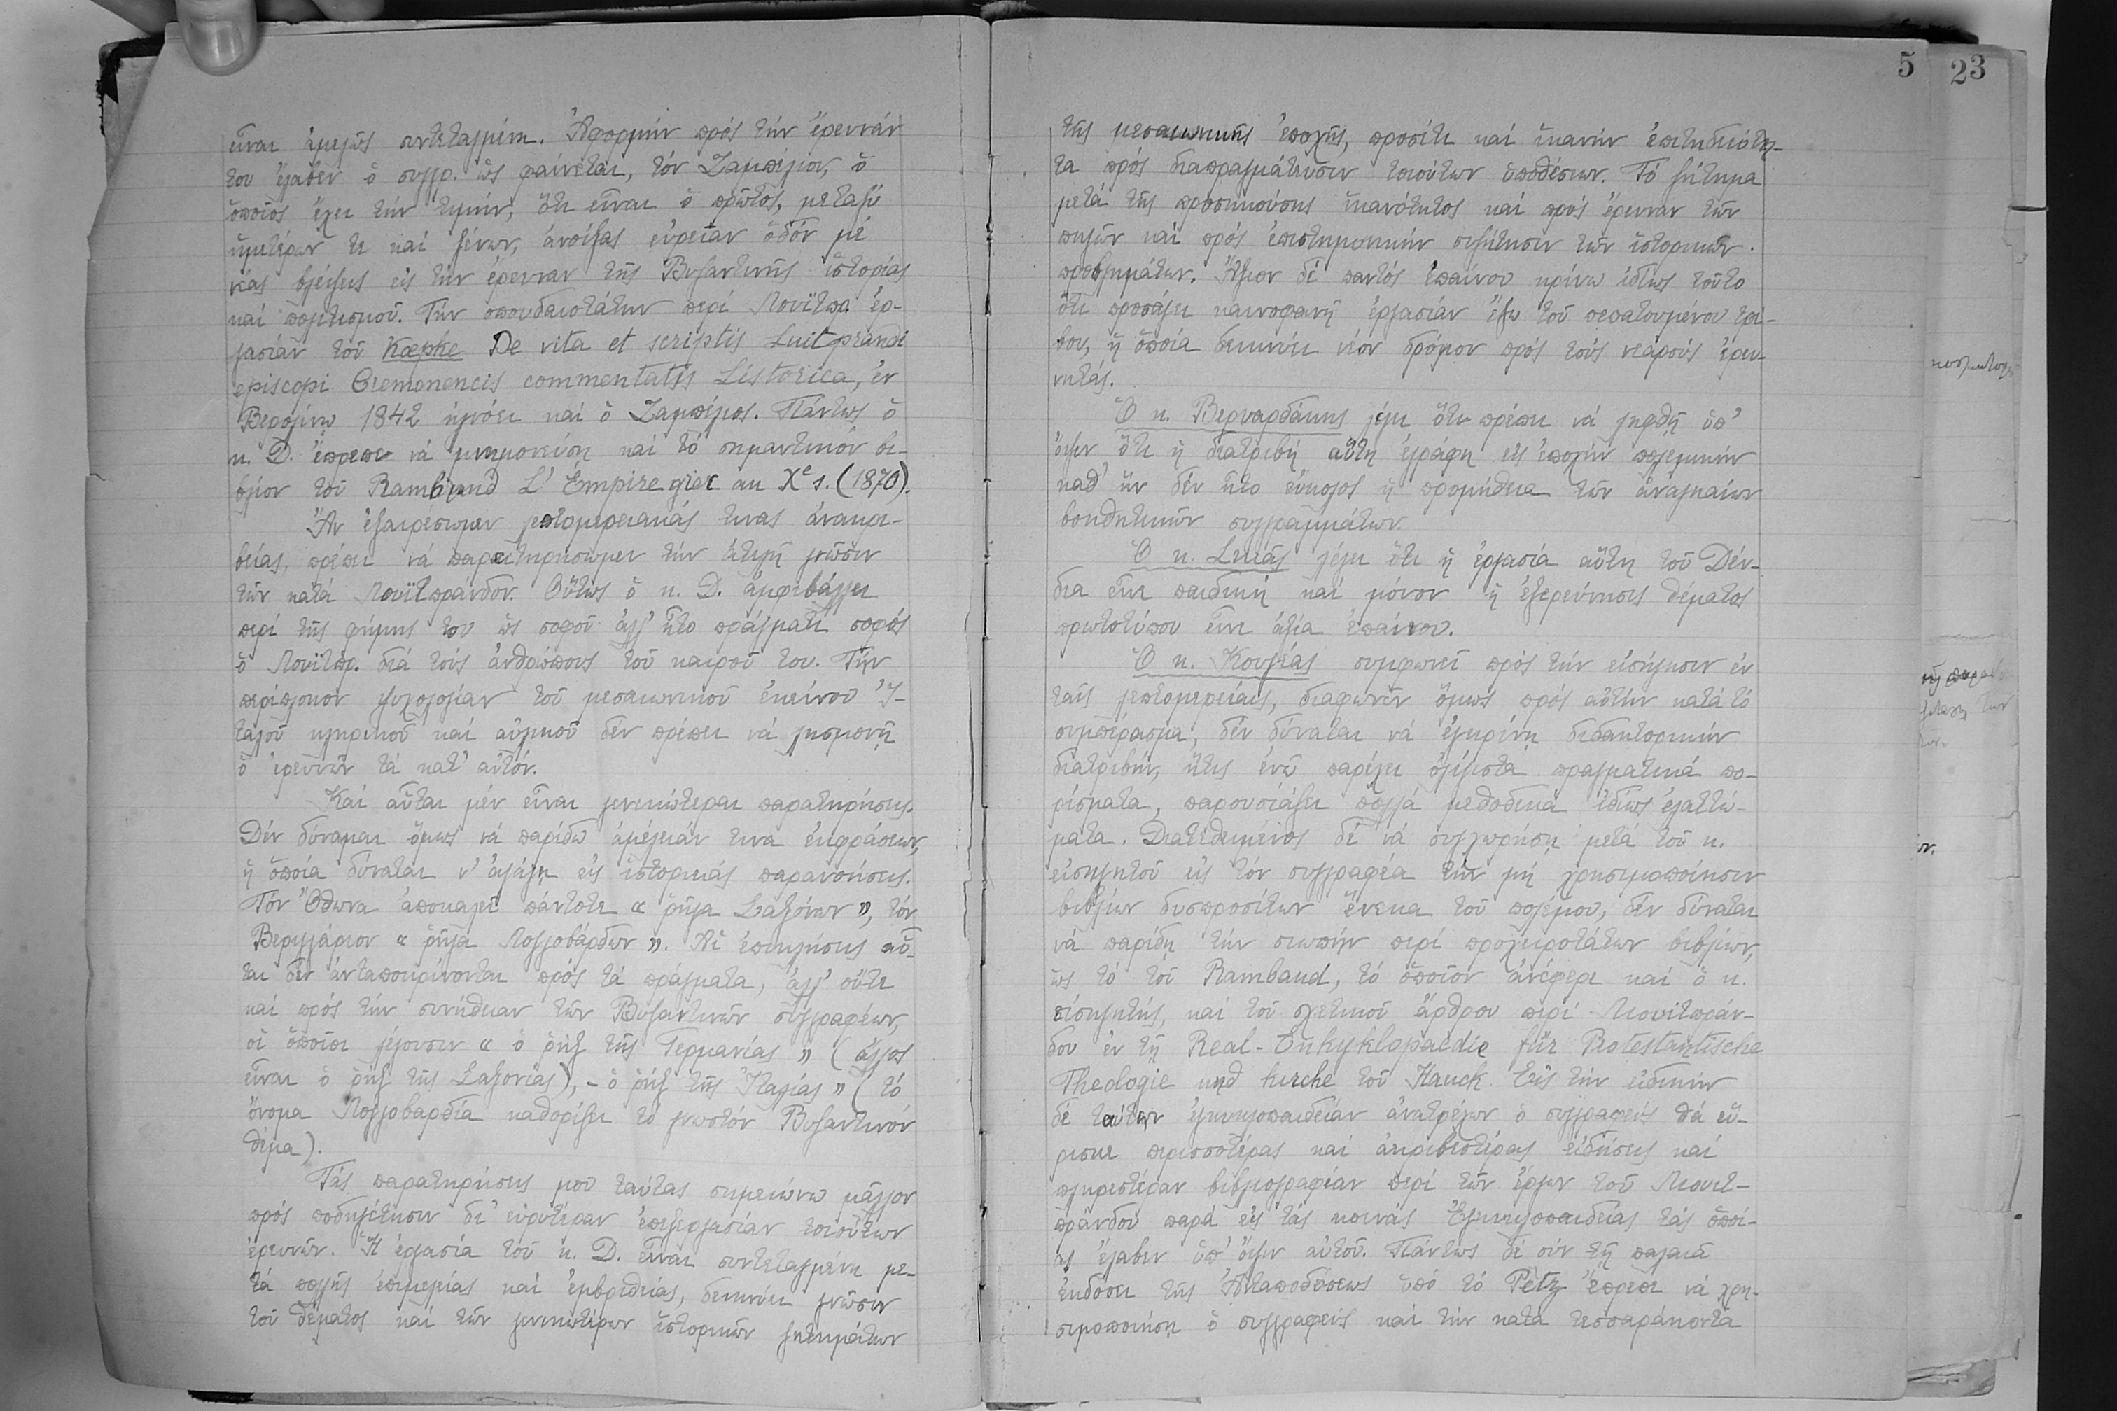 εἶναι ἀμελῶς συντεταγμένη. Ἀφορμήν πρός τήν ἔρευνάν
του ἔλαβεν ὁ συγγρ. ὡς φαίνεται, τόν Ζαμπέλιον, ὁ
ὁποῖος ἔχει τήν τιμήν, ὅτι εἶναι ὁ πρῶτος, μεταξύ
ἡμετέρων τε καί ξένων, ἀνοίξας εὐρεῖαν ὁδόν μέ
νέας βλέψεις εἰς τήν ἔρευναν τῆς Βυζαντινῆς ἱστορίας
καί πολιτισμοῦ. Τήν σπουδαιοτάτην περί Λουϊτπρ. ἐρ-
γασίαν τοῦ Kœpke De vita et scriptis Luitprandi
episcopi Cremonencis commentatis Listorica, ἐν
Βερολίνῳ 1842 ἠγνόει καί ὁ Ζαμπέλιος. Πάντως ὁ
κ. Δ. ἔπρεπε νά μνημονεύσῃ καί τό σημαντικόν βι-
βλίον τοῦ Rambaud L' Émpire grec au Xe s. (1870).
Ἄν ἐξαιρέσωμεν λεπτομερειακάς τινας ἀνακρι-
βείας, πρέπει νά παρατηρήσωμεν τήν ἀτελῆ γνῶσιν
τῶν κατά Λουϊτπρανδον. Οὕτως ὁ κ. Δ. ἀμφιβάλλει
περί τῆς φήμης του ὡς σοφοῦ ἀλλ' ἦτο πράγματι σοφός
ὁ Λουϊτπρ. διά τούς ἀνθρώπους τοῦ καιροῦ του. Τήν
περίπλοκον ψυχολογίαν τοῦ μεσαιωνικοῦ ἐκείνου Ἰ-
ταλοῦ κληρικοῦ καί αὐλικοῦ δέν πρέπει νά λησμονῇ
ὁ ἐρευνῶν τά κατ' αὐτόν.
Καί αὗται μέν εἶναι γενικώτεραι παρατηρήσεις.
Δέν δύναμαι ὅμως νά παρίδω ἀμέλειάν τινα ἐκφράσεων,
ἡ ὁποία δύναται ν' ἀγάγῃ εἰς ἱστορικάς παρανοήσεις.
Τόν Ὄθωνα ἀποκαλεῖ πάντοτε « ῥῆγα Σαξόνων », τόν
Βερεγγάριον « ῥῆγα Λογγοβάρδων ». Αἱ ἐπικλήσεις αὗ-
ται δέν ἀνταποκρίνονται πρός τά πράγματα, ἀλλ' οὔτε
καί πρός τήν συνήθειαν τῶν Βυζαντινῶν συγγραφέων,
οἱ ὁποῖοι λέγουσιν « ὁ ῥήξ τῆς Γερμανίας » ( ἄλλος
εἶναι ὁ ῥήξ τῆς Σαξονίας), - ὁ ῥήξ τῆς Ἰταλίας » ( τό
ὄνομα Λογγοβαρδία καθορίζει τό γνωστόν Βυζαντινόν
θέμα ).
Τάς παρατηρήσεις μου ταύτας σημειώνω μᾶλλον
πρός ποδηγέτησιν δι' εὐρυτέραν ἐπεξεργασίαν τοιούτων
ἐρευνῶν. Ἡ ἐργασία τοῦ κ. Δ. εἶναι συντεταγμένη με-
τά πολλῆς ἐπιμελείας καί ἐμβριθείας, δεικνύει γνῶσιν
τοῦ θέματος καί τῶν γενικωτέρων ἱστορικῶν ζητημάτων
5
23
τῆς μεσαιωνικῆς ἐποχῆς, προσέτι καί ἱκανήν ἐπιτηδειότη-
τα πρός διαπραγμάτευσιν τοιούτων ὑποθέσεων. Τό ζήτημα
μετά τῆς προσηκούσης ἱκανότητος καί πρός ἔρευναν τῶν
πηγῶν καί πρός ἐπιστημονικήν συζήτησιν τῶν ἱστορικῶν
προβλημάτων. Ἄξιον δέ παντός ἐπαίνου κρίνω ἰδίως τοῦτο
ὅτι προσάγει καινοφανῆ ἐργασίαν ἔξω τοῦ πεπατουμένου τρί-
βου, ἡ ὁποία δεικνύει νέον δρόμον πρός τούς νεαρούς ἐρευ-
νητάς.
Ὁ κ. Βερναρδάκης λέγει ὅτι πρέπει νά ληφθῇ ὑπ'
ὄψιν ὅτι ἡ διατριβή αὕτη ἐγράφη εἰς ἐποχήν πολεμικήν
καθ' ἥν δέν ἦτο εὔκολος ἡ προμήθεια τῶν ἀναγκαίων
βοηθητικῶν συγγραμμάτων.
Ὁ κ. Σκιάς λέγει ὅτι ἡ ἐργασία αὕτη τοῦ Δέν-
δια εἶνε παιδική καί μόνον ἡ ἐξερεύνησις θέματος
πρωτοτύπου εἶνε ἀξία ἐπαίνου.
Ὁ κ. Κουγέας συμφωνεῖ πρός τήν εἰσήγησιν ἐν
ταῖς λεπτομερείαις, διαφωνῶν ὅμως πρός αὐτήν κατά τό
συμπέρασμα, δέν δύναται νά ἐγκρίνῃ διδακτορικήν
διατριβήν, ἥτις ἐνῷ παρέχει ὀλίγιστα πραγματικά πο-
ρίσματα, παρουσιάζει πολλά μεθοδικά ἰδίως ἐλαττώ-
ματα. Διατεθειμένος δέ νά συγχωρήσῃ μετά τοῦ κ.
εἰσηγητοῦ εἰς τόν συγγραφέα τήν μή χρησιμοποίησιν
βιβλίων δυσπροσίτων ἕνεκα τοῦ πολέμου, δέν δύναται
νά παρίδῃ τήν σιωπήν περί προχειροτάτων βιβλίων,
ὡς τό τοῦ Rambaud, τό ὁποῖον ἀνέφερε καί ὁ κ.
εἰσηγητής, καί τοῦ σχετικοῦ ἄρθρου περί Λιουιτπράν-
δου ἐν τῇ Real-Enkyklopaedie für Protestantische
Theologie und kirche τοῦ Hauck. Εἰς τήν εἰδικήν
δέ ταύτην ἐγκυκλοπαιδείαν ἀνατρέχων ὁ συγγραφεύς θά εὕ-
ρισκε περισσοτέρας καί ἀκριβεστέρας εἰδήσεις καί
πληρεστέραν βιβλιογραφίαν περί τῶν ἔργων τοῦ Λιουιτ-
πράνδου παρά εἰς τάς κοινάς Ἐγκυκλοπαιδείας τάς ὁποί-
ας ἔλαβεν ὑπ' ὄψιν αὐτοῦ. Πάντως δέ σύν τῇ παλαιᾷ
ἐκδόσει τῆς Ἀνταποδόσεως ὑπό τό Petz ἔπρεπε νά χρη-
σιμοποιήσῃ ὁ συγγραφεύς καί τήν κατά τεσσαράκοντα